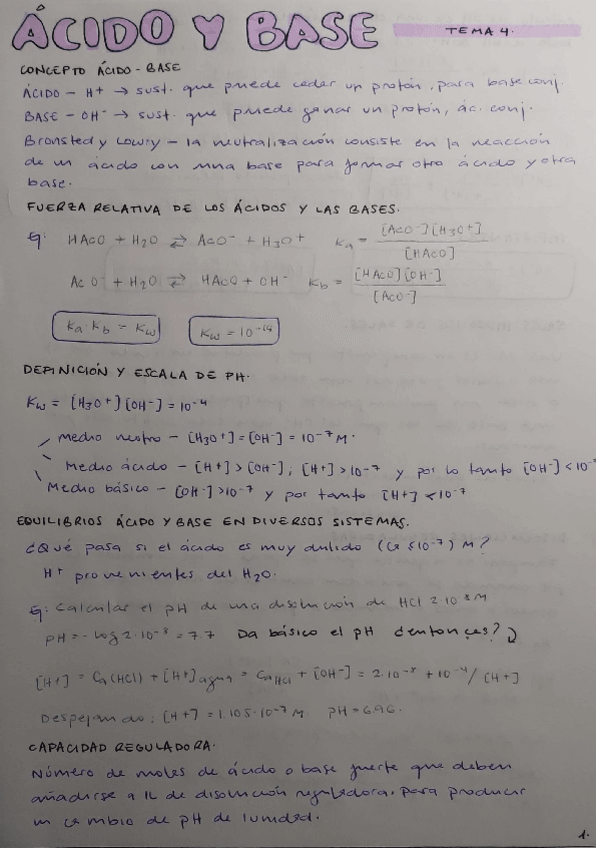 ÁCIDO Y BASE
TEMA 4.
CONCEPTO ÁCIDO - BASE
ÁCIDO - H+ → sust. que puede ceder un protón, para base conj.
BASE - OH- → sust. que puede ganar un protón, ác. conj.
Bronsted y Lowry - la neutralización consiste en la reacción
de un ácido con una base para formar otro ácido y otra
base.
FUERZA RELATIVA DE LOS ÁCIDOS Y LAS BASES.
Ej: HACO + H2O ⇄ ACO- + H3O+ Ka = [ACO-][H3O+] / [HACO]
ACO- + H2O ⇄ HACO + OH- Kb = [HACO][OH-] / [ACO-]
Ka · Kb = Kw Kw = 10-14
DEFINICIÓN Y ESCALA DE PH.
Kw = [H3O+][OH-] = 10-4
Medio neutro - [H3O+] = [OH-] = 10-7 M.
Medio ácido - [H+] > [OH-]; [H+] > 10-7 y por lo tanto [OH-] < 10-7
Medio básico - [OH-] > 10-7 y por tanto [H+] < 10-7
EQUILIBRIOS ÁCIDO Y BASE EN DIVERSOS SISTEMAS.
¿Qué pasa si el ácido es muy diluido (Ca ≤ 10-7) M?
H+ provenientes del H2O.
Ej: Calcular el pH de una disolución de HCl 2·10-8 M
pH = -log 2·10-8 = 7.7 Da básico el pH ¿entonces?
[H+] = Ca(HCl) + [H+]agua = Ca HCl + [OH-] = 2·10-8 + 10-4/[H+]
Despejando: [H+] = 1.105·10-7 M pH = 6.96.
CAPACIDAD REGULADORA.
Número de moles de ácido o base fuerte que deben
añadirse a 1L de disolución reguladora, para producir
un cambio de pH de 1 unidad.
1.